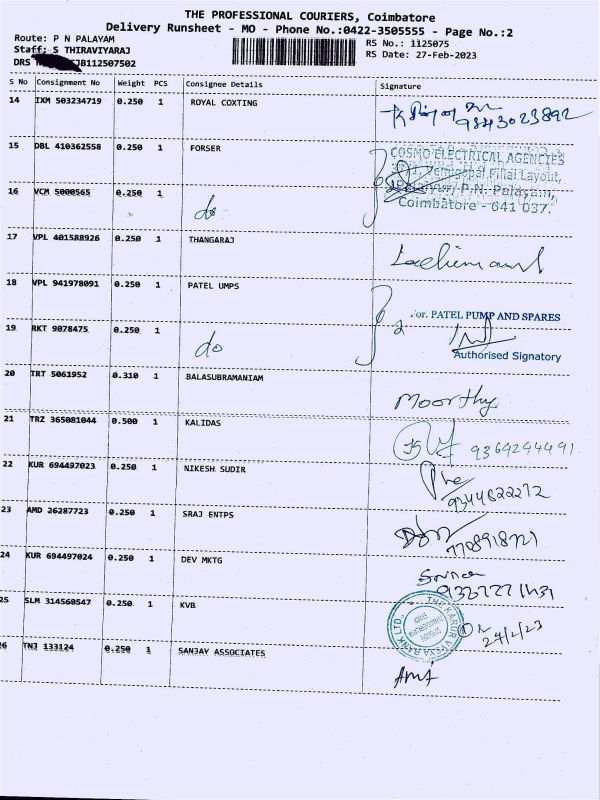 THE PROFESSIONAL COURIERS, Coimbatore
Delivery Runsheet - MO - Phone No.:0422-3505555 - Page No.:2
Route: P N PALAYAM
RS No.: 1125075
Staff: S THIRAVIYARAJ
RS Date: 27-Feb-2023
DRS JB112507502
S No Consignment No Weight PCS Consignee Details Signature
14 IXM 503234719 0.250 1 ROYAL COXTING
9843023892
15 DBL 410362558 0.250 1 FORSER
COSMO ELECTRICAL AGENCIES
Venugopal Pillai Layout,
P.N. Palayam,
Coimbatore - 641 037.
16 VCM 5000565 0.250 1 do
17 VPL 401588926 0.250 1 THANGARAJ
18 VPL 941978091 0.250 1 PATEL UMPS
For. PATEL PUMP AND SPARES
2
Authorised Signatory
19 RKT 9078475 0.250 1 do
20 TRT 5061952 0.310 1 BALASUBRAMANIAM
Moorthy
21 TRZ 365081044 0.500 1 KALIDAS
9364244491
22 KUR 694497023 0.250 1 NIKESH SUDIR
9344822272
23 AMD 26287723 0.250 1 SRAJ ENTPS
24 KUR 694497024 0.250 1 DEV MKTG
25 SLM 314560547 0.250 1 KVB
THE KARUR VYSYA BANK LTD.
24/2/23
26 TNJ 133124 0.250 1 SANJAY ASSOCIATES